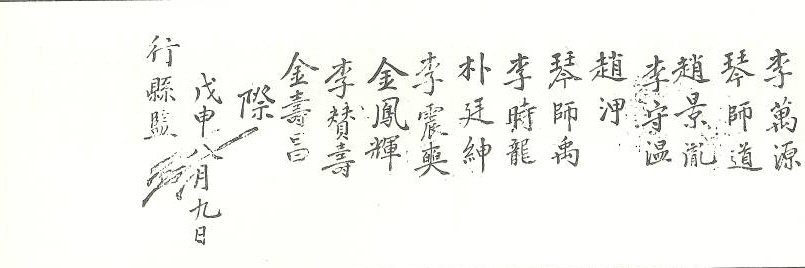 李萬源
琴師道
趙景胤
李守温
趙浺
琴師禹
李時龍
朴廷紳
李震奭
金鳳輝
李賛壽
金壽昌
際
戊申八月九日
行縣監